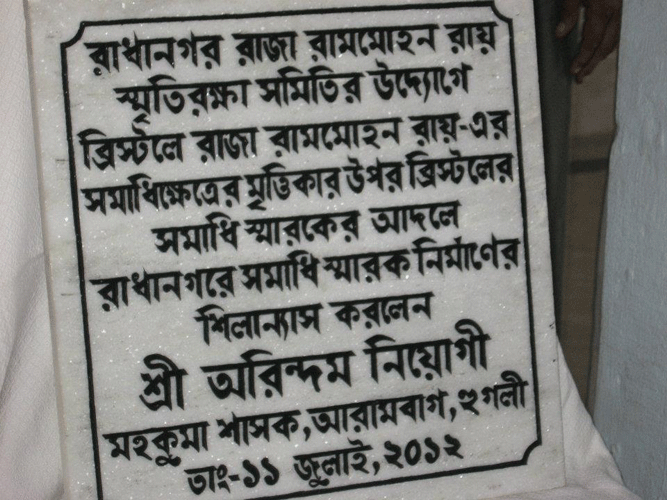 রাধানগর রাজা রামমোহন রায়
স্মৃতিরক্ষা সমিতির উদ্যোগে
ব্রিস্টলে রাজা রামমোহন রায়-এর
সমাধিক্ষেত্রের মৃত্তিকার উপর ব্রিস্টলের
সমাধি স্মারকের আদলে
রাধানগরে সমাধি স্মারক নির্মাণের
শিলান্যাস করলেন
শ্রী অরিন্দম নিয়োগী
মহকুমা শাসক, আরামবাগ, হুগলী
তাং-১১ জুলাই, ২০১২